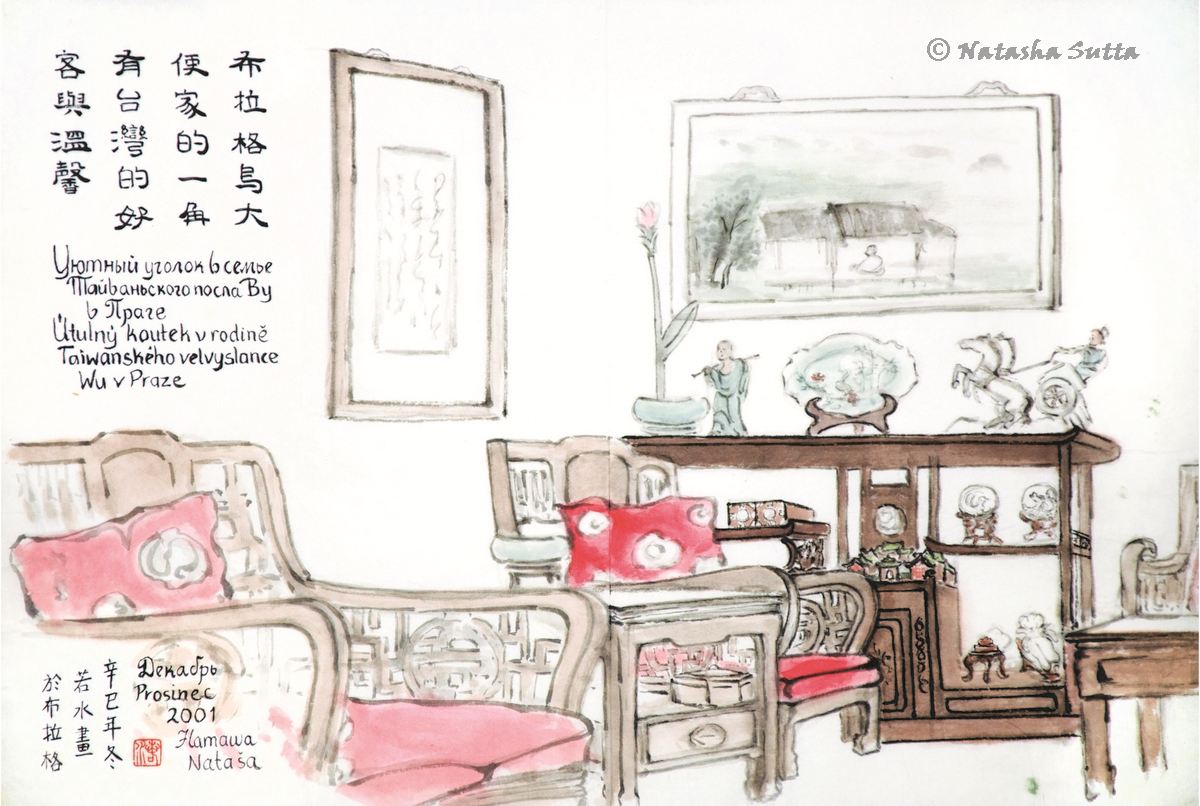 © Natasha Sutta
布拉格烏大
便家的一角
有台灣的好
客與溫馨
Уютный уголок в семье
Тайваньского посла Ву
в Праге
Útulný koutek v rodině
Taiwanského velvyslance
Wu v Praze
辛巳年冬
若水畫
於布拉格
Декабрь
Prosinec
2001
Наташа
Nataša